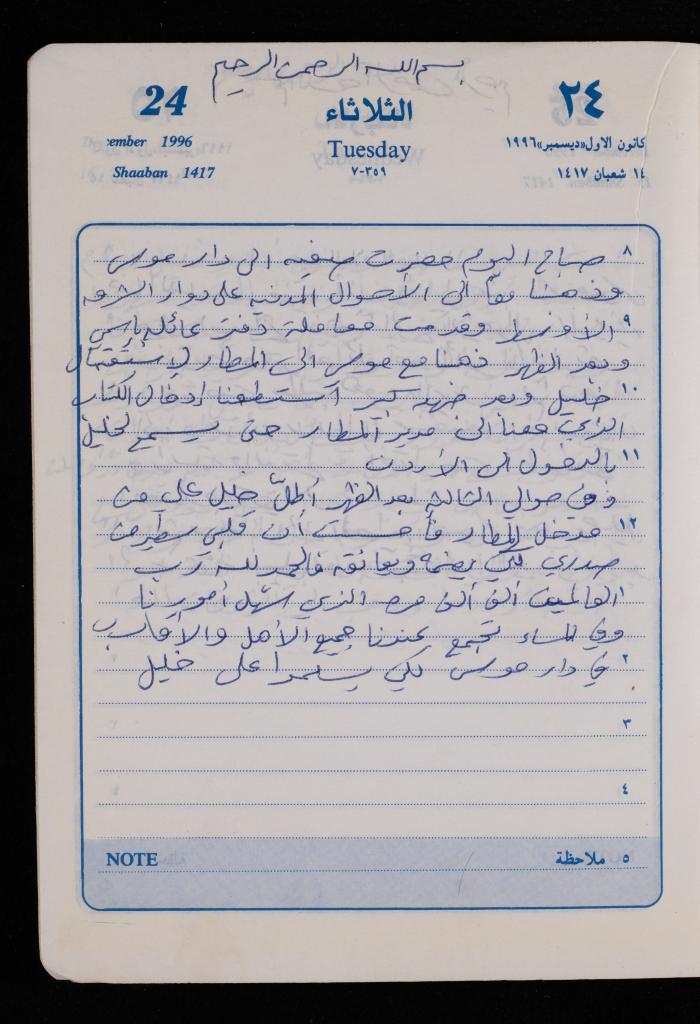 بسم الله الرحمن الرحيم
24 الثلاثاء ٢٤
ember 1996 Tuesday كانون الاول «ديسمبر» ١٩٩٦
Shaaban 1417 ٧-٣٥٩ ١٤ شعبان ١٤١٧
٨ صباح اليوم حضرت صفيه الى دار موسى
وذهبنا معاً الى الأحوال المدنيه على دوار الشرق
٩ الأوسط وقدمت معاملة دفتر عائله باسمي
وبعد الظهر ذهبنا مع موسى الى المطار لإستقبال
١٠ خليل وبعد جهد كبير استطعنا إدخال الكتاب
الذي معنا الى مدير المطار حتى يسمح لخليل
١١ بالدخول الى الأردن
وفي حوالي الثالثه بعد الظهر أطلّ خليل علي من
١٢ مدخل المطار فأحسست أن قلبي سيطير من
صدري لكي يضمه ويعانقه فالحمد لله رب
العالمين ألف ألف مره الذي سهل أمورنا
وفي المساء تجمع عندنا جميع الأهل والأقارب
٢ في دار موسى لكي يسلموا على خليل
٣
٤
NOTE ملاحظة ٥